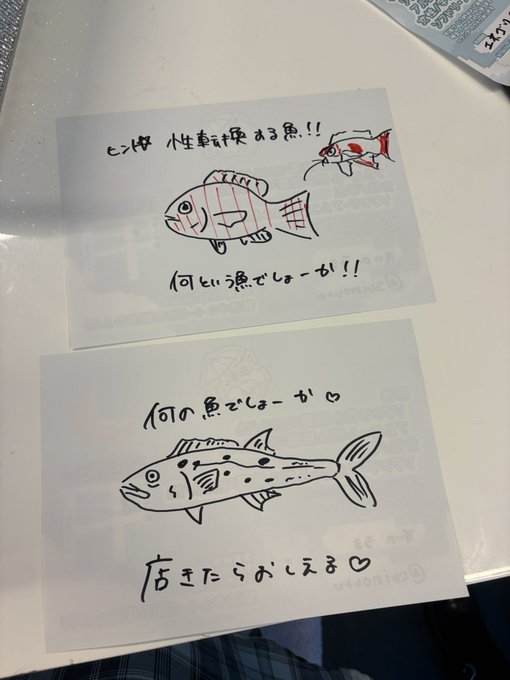 ヒント☆ 性転換する魚!!
何という魚でしょーか!!
何の魚でしょーか♡
店きたらおしえる♡